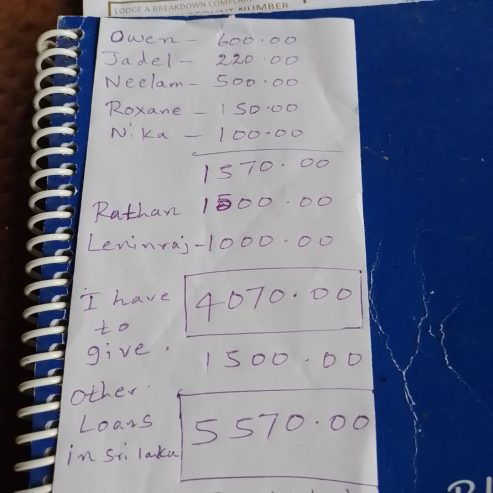 LODGE A BREAKDOWN COMPLAINT
ACCOUNT NUMBER
Owen - 600.00
Jadel - 220.00
Neelam - 500.00
Roxane - 150.00
Nika - 100.00
1570.00
Rathan 1500.00
Leninraj - 1000.00
I have to give. 4070.00
1500.00
other Loans in Sri lanka 5570.00